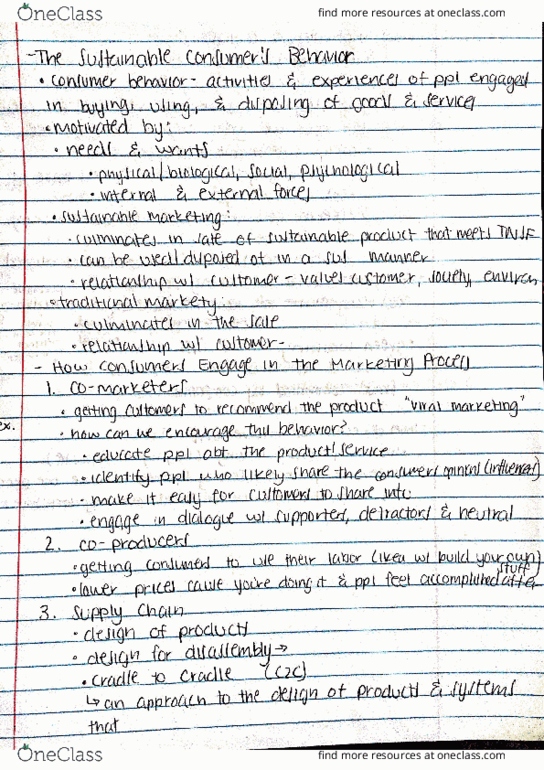 OneClass
find more resources at oneclass.com
- The Sustainable Consumer's Behavior
• consumer behavior - activities & experiences of ppl engaged
in buying, using, & disposing of goods & services
• motivated by:
• needs & wants
• physical/biological, social, psychological
• internal & external forces
• sustainable marketing:
• culminates in sale of sustainable product that meets
• can be used/disposed of in a sus manner
• relationship w/ customer - values customer, society, environ
• traditional markety:
• culminates in the sale
• relationship w/ customer -
- How consumers Engage in the Marketing Process
1. co-marketers
• getting customers to recommend the product "viral marketing"
ex.
• how can we encourage this behavior?
• educate ppl abt the product/service
• identify ppl who likely share the consumers (influencer)
• make it easy for customers to share info
• engage in dialogue w/ supporters, detractors & neutral
2. co-producers
• getting consumers to use their labor (ikea w/ build your own)
stuff
• lower prices cause you're doing it & ppl feel accomplished after
3. Supply Chain
• design of products
• design for disassembly →
• cradle to cradle (C2C)
↳ an approach to the design of products & systems
that
OneClass
find more resources at oneclass.com